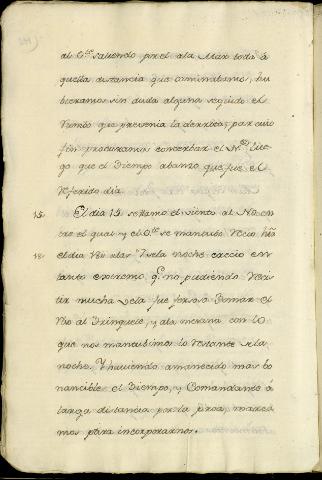 al O.te saliendo por el ala Mar toda a
quella distancia que caminabamos, hu
bieramos sin duda alguna seguido el
Rumbo que prevenia la derrota; por cuio
fin procuramos conserbar el N.te lue
go que el Tiempo abanzo que fue el
referido dia.
15. El dia 15 se llamo el viento al No. en
tre el qual y el O.te se mantubo recio hta
18. el dia 18. a las 7 de la noche crecio en
tanto extremo, q.e no pudiendo resis
tir mucha Vela fue forsoso tomar el
Riso al Trinquete, y a la mesana con lo
que nos mantubimos lo restante de la
noche. Y haviendo amanecido mas bo
nancible el Tiempo, y Comandante á
larga distancia por la proa, marea
mos para incorporarnos.